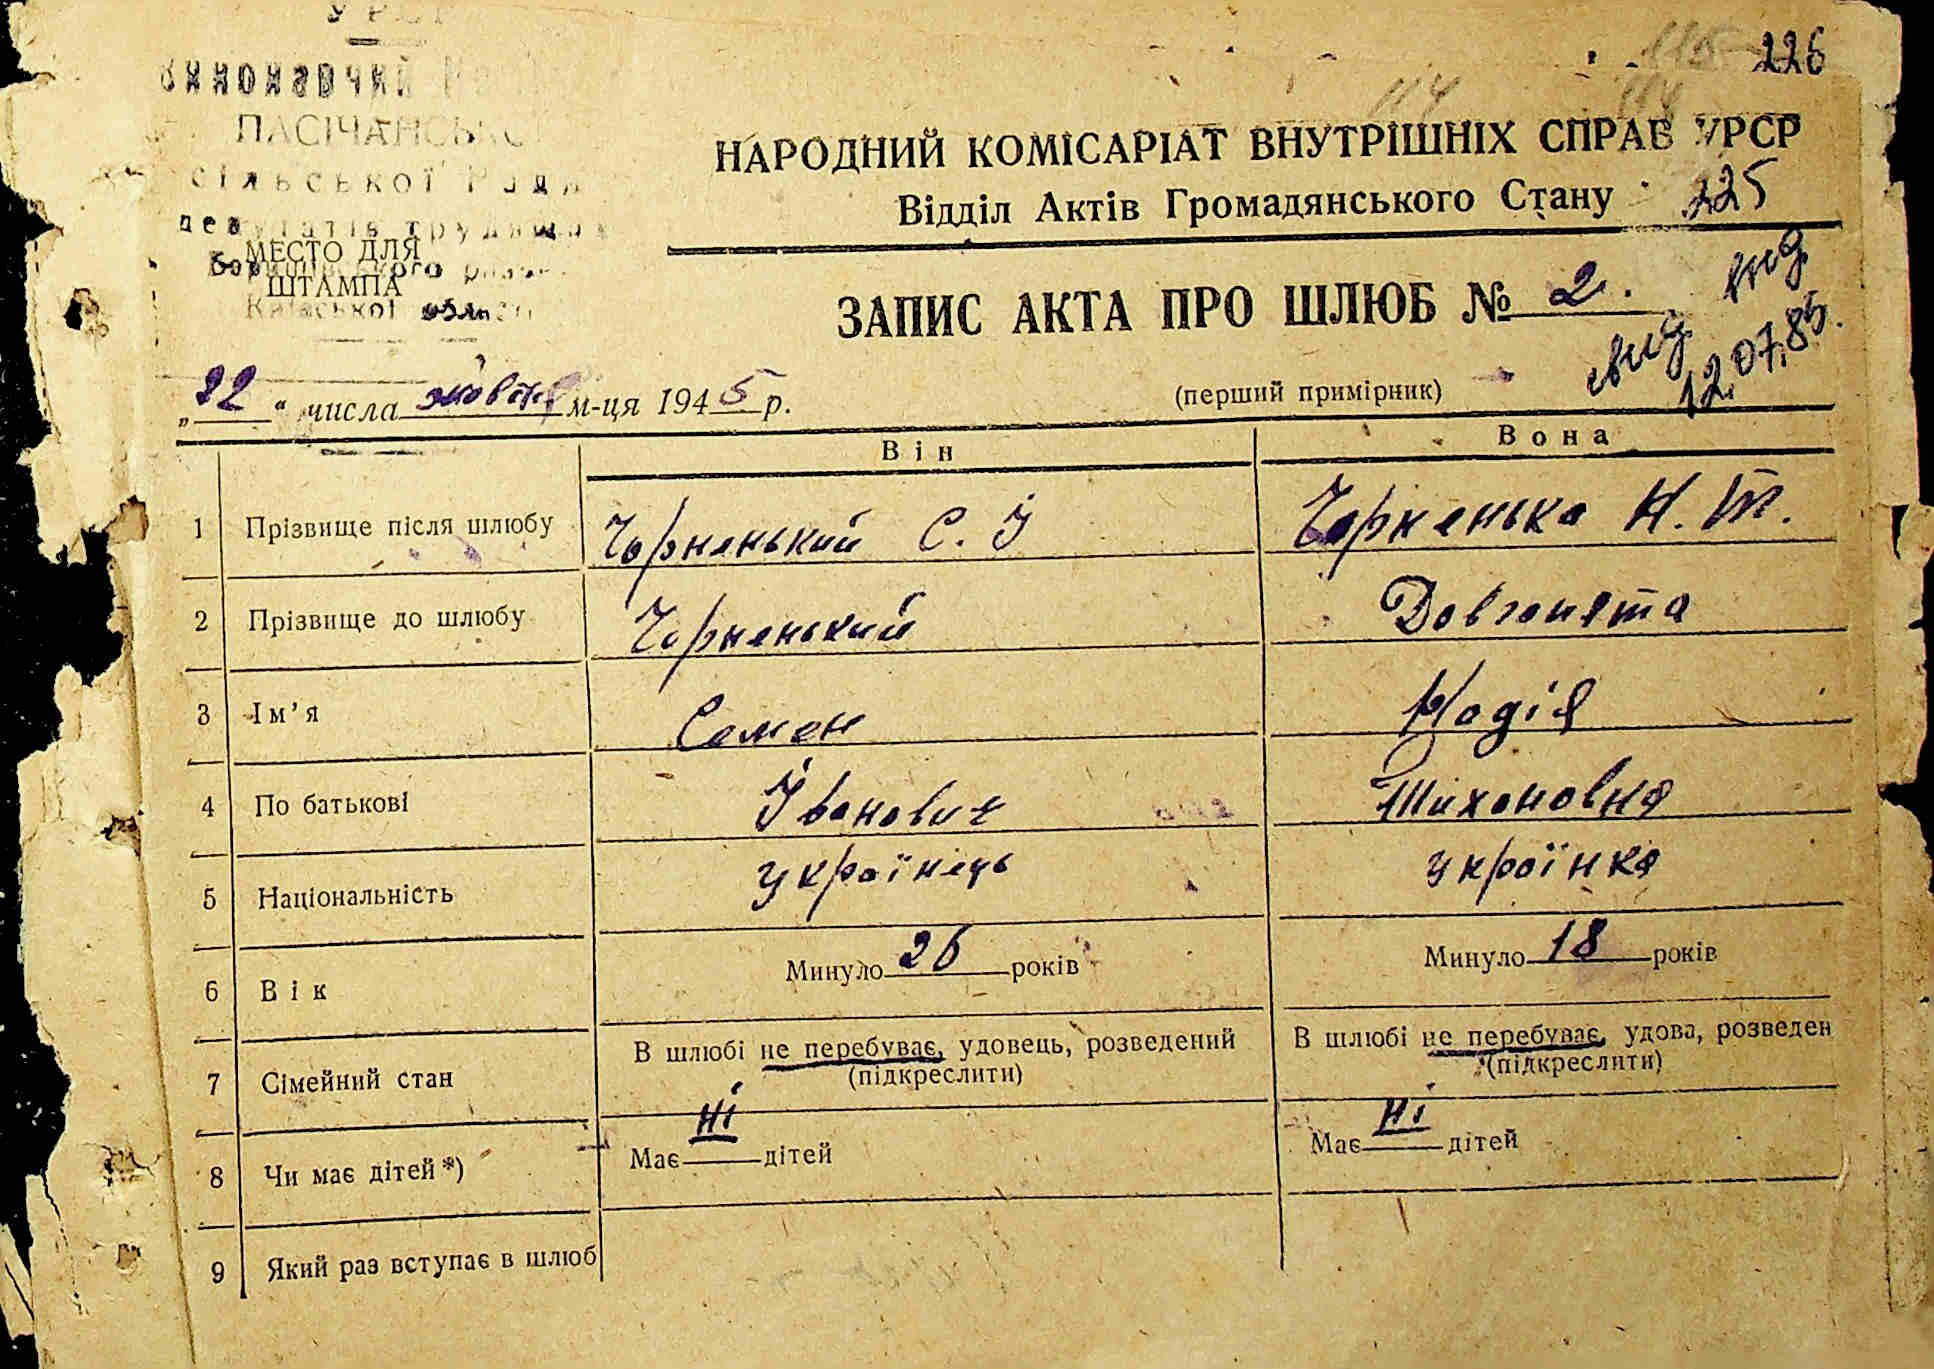 УРСР
Виконавчий
ПАСІЧАНСЬКОЇ
сільської Ради
депутатів трудящих
МЕСТО ДЛЯ
ШТАМПА
Київської області
226
114 114
НАРОДНИЙ КОМІСАРІАТ ВНУТРІШНІХ СПРАВ УРСР
Відділ Актів Громадянського Стану 225
ЗАПИС АКТА ПРО ШЛЮБ № 2.
12.07.85.
„22“ числа жовтня м-ця 1945 р.
(перший примірник)
Він Вона
1 Прізвище після шлюбу Чорненький С. І Чорненька Н. Т.
2 Прізвище до шлюбу Чорненький Довгопята
3 Ім'я Семен Надія
4 По батькові Іванович Тихоновна
5 Національність українець українка
6 Вік Минуло 26 років Минуло 18 років
7 Сімейний стан В шлюбі не перебуває, удовець, розведений В шлюбі не перебуває, удова, розведен
(підкреслити) (підкреслити)
8 Чи має дітей*) Має ні дітей Має ні дітей
9 Який раз вступає в шлюб